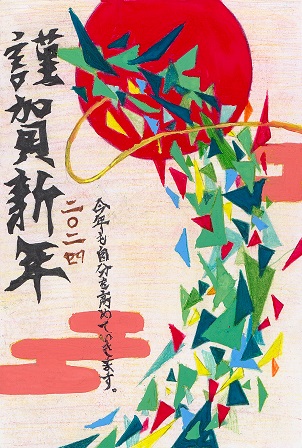 謹賀新年
二〇二四
今年も自分を高めていきます。